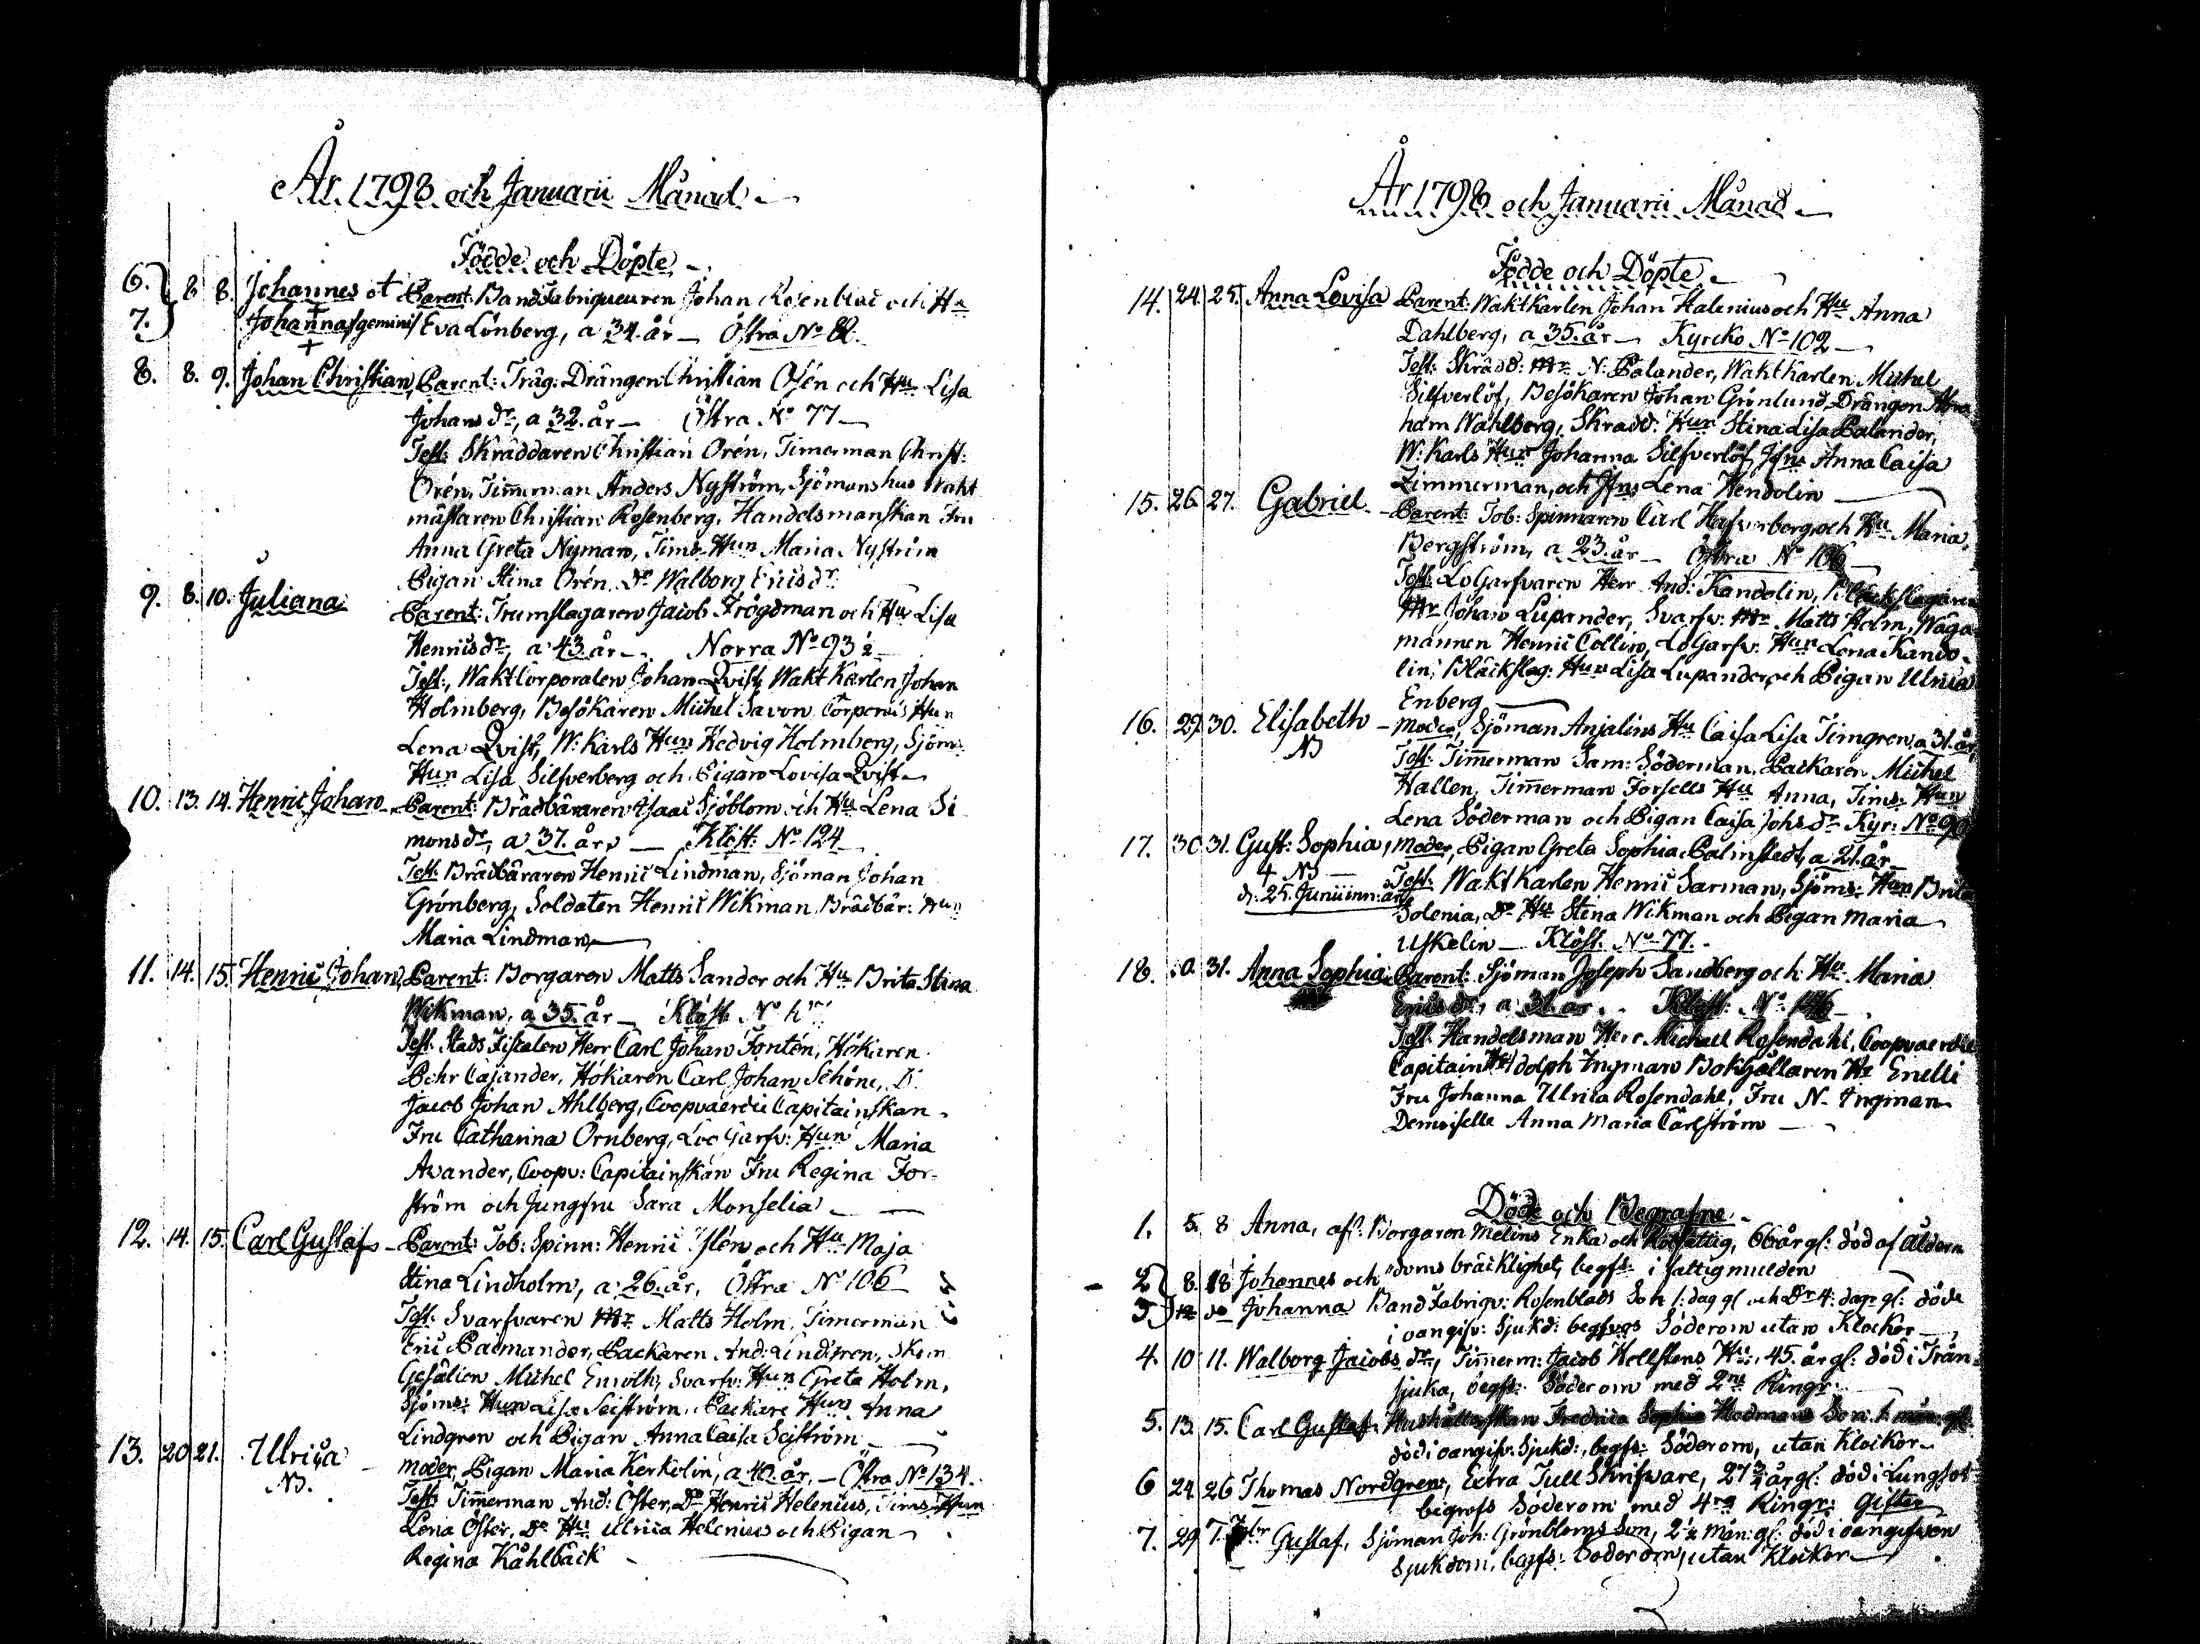 År 1798 och Januarii Månad
Födde och Döpte
6. 8 8. Johannes ot Parent: Bandfabriqueuren Johan Rosenblad och Hu
7. Johanna /gemini/ Eva Lönberg, a 34. år — Östra No 8
8. 8. 9. Johan Christian, Parent: Träg: Drängen Christian Osén och Hu Lisa
Johans dr, a 32. år — Östra No 77 —
Test: Skräddaren Christian Orén, Timerman Christ:
Orén, Timerman Anders Nyström, Sjömanshus Wakt
mästaren Christian Rosenberg, Handelsmanskan Fru
Anna Greta Nyman, Tims Hun Maria Nyström
Pigan Stina Orén, Do Walborg Ericsdr
9. 8. 10. Juliana Parent: Trumslagaren Jacob Frögdman och Hu Lisa
Henricsdr, a 43 år — Norra No 93 ½
Test:, Wakt Corporalen Johan Qvist, Wakt Karlen Johan
Holmberg, Besökaren Michel Savon, Corporals Hun
Lena Qvist, W: Karls Hun Hedvig Holmberg, Sjöm:
Hun Lisa Silfverberg och Pigan Lovisa Qvist
10. 13. 14. Henric Johan Parent: Brädbäraren Isaac Sjöblom och Hu Lena Si
monsdr, a 37. år, — Klöst: No 124
Test: Brädbäraren Henric Lindman, Sjöman Johan
Grönberg, Soldaten Henric Wikman, Brädbär: Hun
Maria Lindman
11. 14. 15. Henric Johan, Parent: Borgaren Matts Sander och Hu Brita Stina
Wikman, a 35. år — Klöst No
Test: Stads Fiscalen Herr Carl Johan Fontén, Hökaren
Pehr Cajander, Hökaren Carl Johan Schöne, D:
Jacob Johan Ahlberg, Coopvaerdie Capitainskan
Fru Catharina Örnberg, Loo Garfv: Hun Maria
Avander, Coopv: Capitainskan Fru Regina For-
ström och Jungfru Sara Monselia
12. 14. 15. Carl Gustaf Parent: Tob: Spinn: Henric Islén och Hu Maja
Stina Lindholm, a 26. år, Östra No 106
Test: Svarfvaren Mr Matts Holm, Timerman
Eric Palmander, Packaren And: Lindgren, Skom
Gesälien Michel Enroth, Svarfv: Hun Greta Holm,
Sjöms: Hun Lisa Seiström, Packare Hun Anna
Lindgren och Pigan Anna Caisa Seiström
13. 20 21. Ulrica Moder, Pigan Maria Kerkolin, a 40. år, — Östra No 134.
NB. Test: Timerman And: Öster, Do Henric Helenius, Tims Hun
Lena Öster, Do Hu Ulrica Helenius och Pigan
Regina Kåhlbäck
År 1798 och Januarii Månad
Födde och Döpte
14. 24. 25. Anna Lovisa Parent: Waktkarlen Johan Halenius och Hu Anna
Dahlberg, a 35. år — Kyrcko No 102 —
Test: Skrädd: Mr N. Palander, Waktkarlen Michel
Silfverlöf, Besökaren Johan Grönlund, Drängen Abra
ham Wahlberg, Skradd: Hun Stina Lisa Palander,
W: Karls Hun Johanna Silfverlöf, Jfru Anna Caisa
Zimmerman, och Jfru Lena Hendolin
15. 26. 27. Gabriel Parent: Tob: Spinnaren Carl Hafverberg, och Hu Maria
Bergström, a 23. år — Östra No 106 —
Test: Lo Garfvaren Herr And: Kandolin, Bleckslagaren
Mr Johan Lupander, Svarfv: Mr Matts Holm, Wåga
männen Henric Collin, Lo Garfv: Hun Lena Kando
lin, Bläckslag: Hun Lisa Lupander, och Pigan Ulrica
Enberg
16. 29 30. Elisabeth Moder, Sjöman Anjelins Hu Caisa Lisa Timgren, a 31. år,
NB Test: Timmerman Sam: Söderman, Packaren Michel
Hallen, Timmerman Forsells Hu Anna, Tims: Hun
Lena Söderman och Pigan Caisa Johs dr Kyr: No 90
17. 30. 31. Gust: Sophia, Moder, Pigan Greta Sophia Palmstedt, a 21. år
+ NB Test: Waktkarlen Henric Sarman, Sjöms: Hun Brita
d: 25. Junii inn: år Solenia, Do Hu Stina Wikman och Pigan Maria
Uskelin — Klöst. No 77.
18. 30. 31. Anna Sophia Parent: Sjöman Joseph Sandberg och Hu Maria
Ericsdr, a 31. år . . Klost: No 146
Test: Handelsman Herr Michael Rosendahl, Coopvaerdie
Capitain Adolph Ingman Bokhållaren Hr Enelli
Fru Johanna Ulrica Rosendahl, Fru N. Ingman
Demoiselle Anna Maria Carlström
Döde och Begrafne
1. 5. 8 Anna, afl: Borgaren Melins Enka och Rotfattig, 66 år gl: död af ålderns
doms bräcklighet, begfs: i fattigmulden
2 8. 18 Johannes och
3 Johanna Bandfabriqv: Rosenblads Son 1. dag gl och Dr 4: dagr gl: döde
i oangifv: Sjukd: begfvos Söderom utan Klockor
4. 10 11. Walborg Jacobs dr, Timmerm: Jacob Hellstens Hu. 45. år gl: död i Trån-
sjuka, begfs: Söderom med 2ne Ringr:
5. 13. 15. Carl Gustaf, Hushållerskan Fredrica Sophia Hodmans Son 1. mån: gl:
död i oangifv: Sjukd:, begfs: Söderom, utan Klockor
6 24. 26 Thomas Nordgren, Extra Tull Skrifvare, 27 ¾ år gl: död i Lungsot
begrofs Söderom med 4ra Ringr: Gifter
7. 29 Gustaf, Sjöman Joh: Grönbloms Son, 2 ½ mån: gl: död i oangifven
Sjukdom, begfs: Söderom, utan Klockor